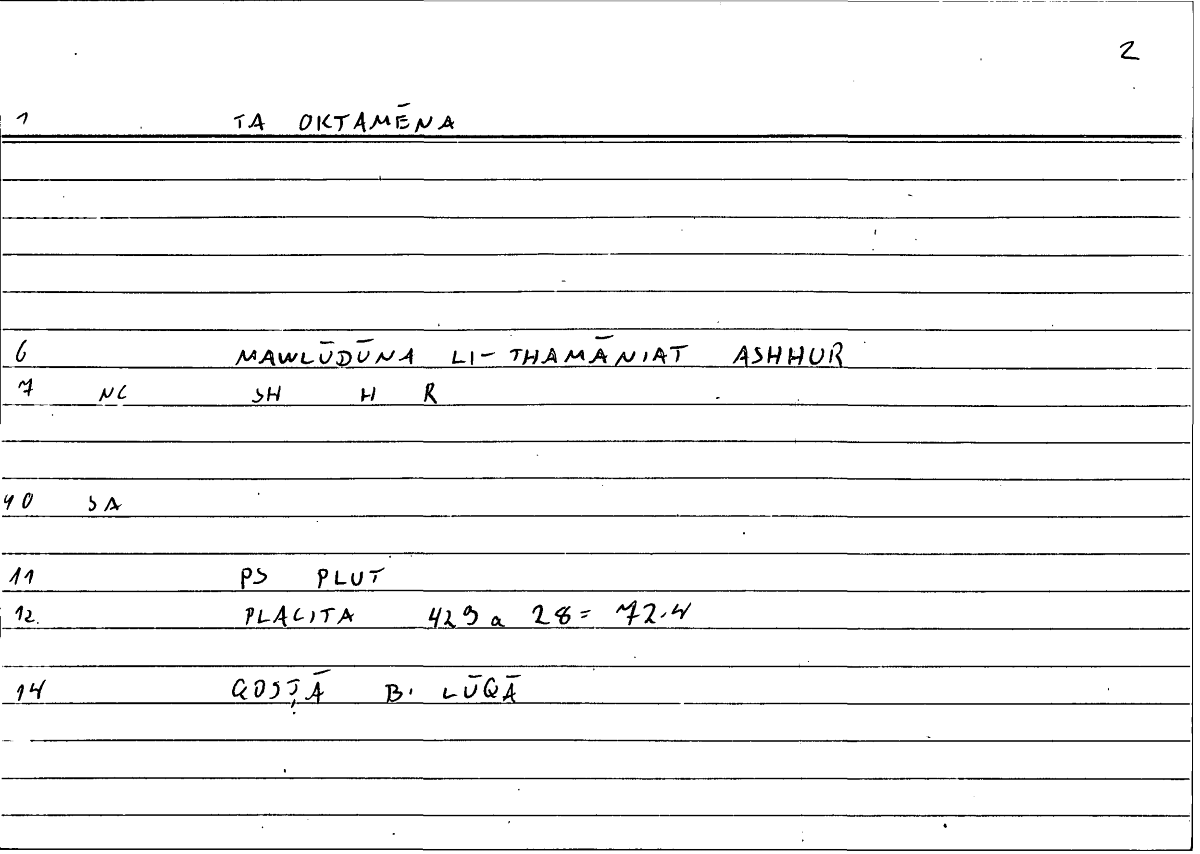 2
1 TA OKTAMĒNA
6 MAWLŪDŪNA LI-THAMĀNIAT ASHHUR
7 NC SH H R
40 SA
11 PS PLUT
12. PLACITA 429 a 28 = 72.4
14 QOSṬĀ B. LŪQĀ